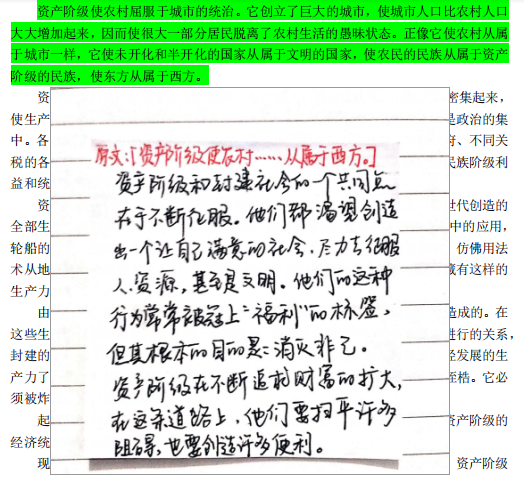 资产阶级使农村屈服于城市的统治。它创立了巨大的城市，使城市人口比农村人口
大大增加起来，因而使很大一部分居民脱离了农村生活的愚昧状态。正像它使农村从属
于城市一样，它使未开化和半开化的国家从属于文明的国家，使农民的民族从属于资产
阶级的民族，使东方从属于西方。
资 密集起来，
使生产 是政治的集
中。各 府、不同关
税的各 民族阶级利
益和统
资 世代创造的
全部生 中的应用，
轮船的 仿佛用法
术从地 藏有这样的
生产力
由 造成的。在
这些生 进行的关系，
封建的 经发展的生
产力了 桎梏。它必
须被炸
起 资产阶级的
经济统
现 资产阶级
原文:「资产阶级使农村……从属于西方。」
资产阶级和封建社会的一个共同点
在于不断征服。他们都渴望创造
出一个让自己满意的社会，尽力去征服
人、资源，甚至是文明。他们的这种
行为常常被冠上“福利”的标签，
但其根本的目的是：消灭非己。
资产阶级在不断追求财富的扩大，
在这条道路上，他们要扫平许多
阻碍，也要创造许多便利。